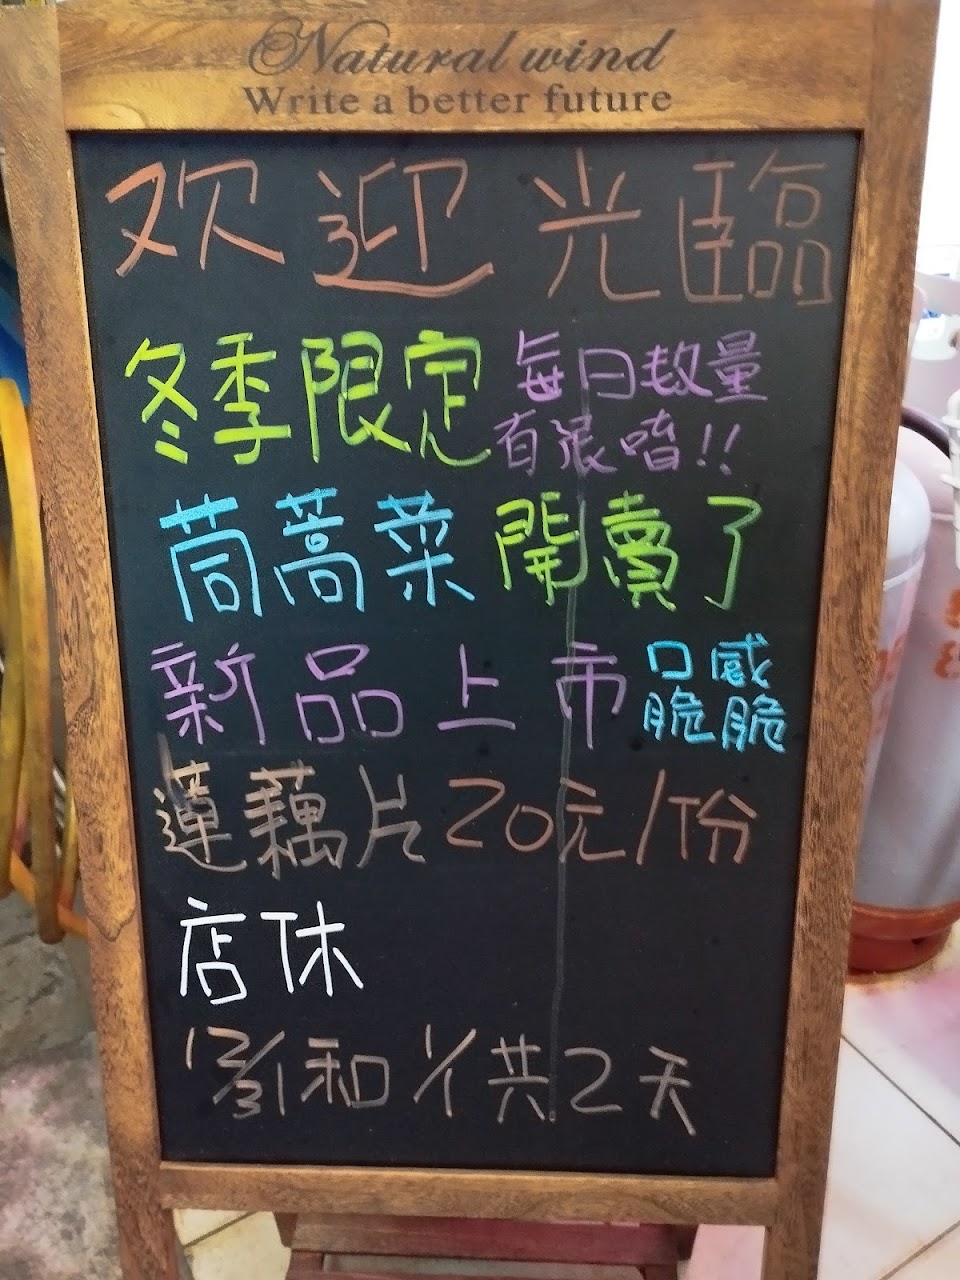 Natural wind
Write a better future
欢迎光臨
冬季限定 每日数量
有限唷!!
茼蒿菜 開賣了
新品上市 口感
脆脆
蓮藕片20元/份
店休
12/31和1/1共2天